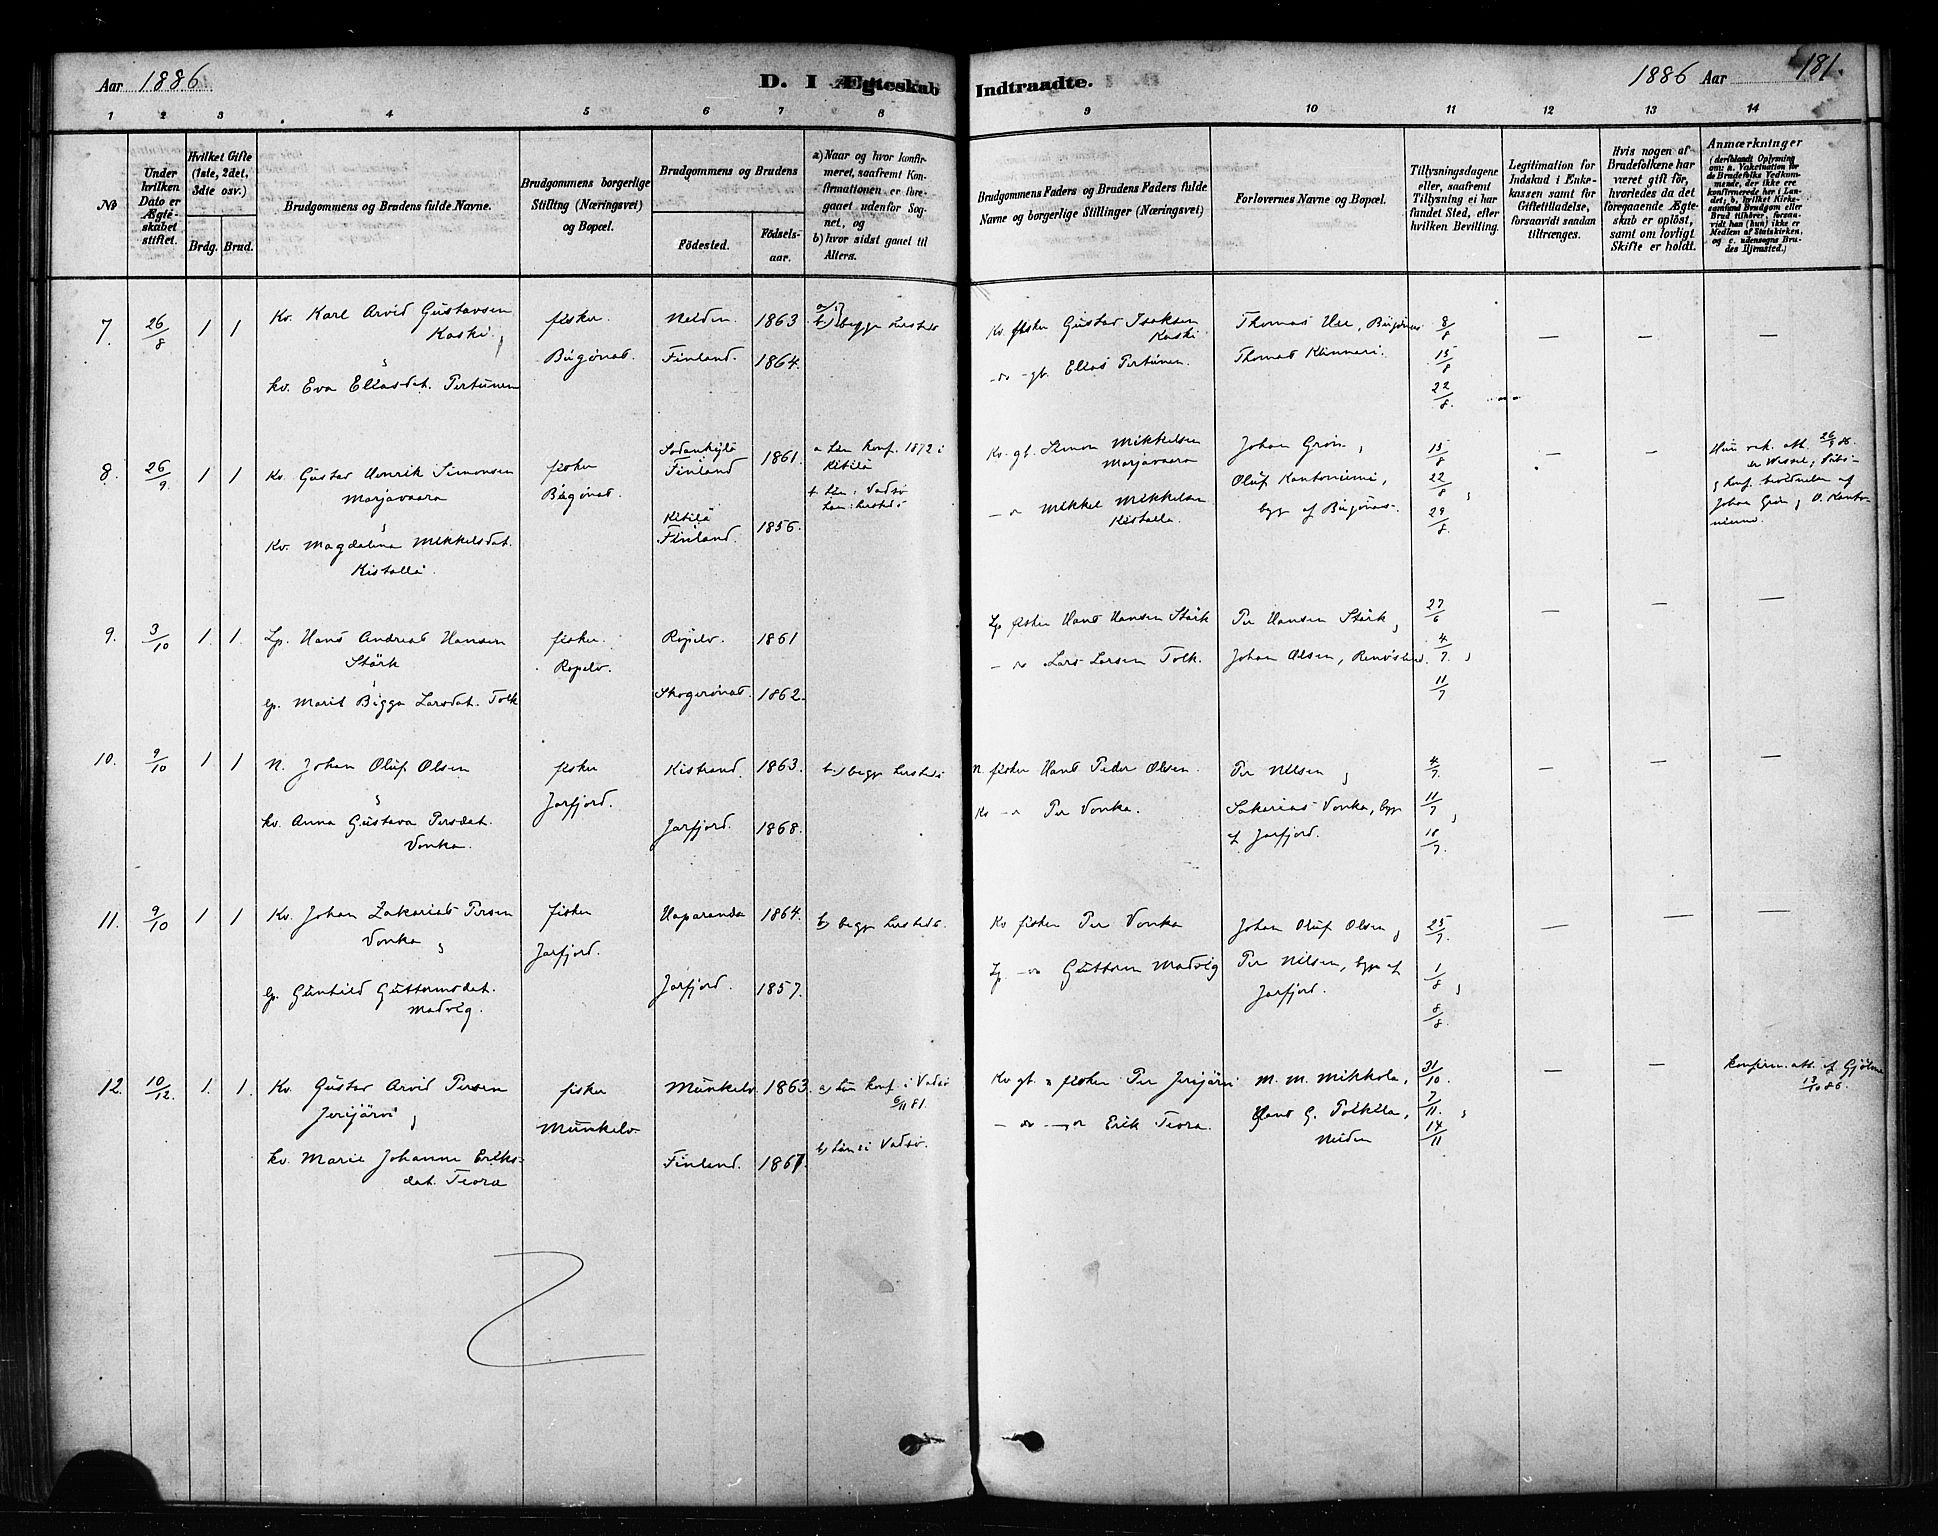 Aar 1886
D. I Ægteskab Indtraadte.
1886 Aar 181.
1 2 3 4 5 6 7 8 9 10 11 12 13 14
No
Under hvilken Dato er Ægteskabet stiftet.
Hvilket Gifte (1ste, 2det, 3dte osv.)
Brdg. Brud.
Brudgommens og Brudens fulde Navne.
Brudgommens borgerlige Stilling (Næringsvei) og Bopæl.
Brudgommens og Brudens
Födested.
Födselsaar.
a) Naar og hvor konfirmeret, saafremt Konfirmationen er foregaaet udenfor Sognet, og
b) hvor sidst gaaet til Alters.
Brudgommens Faders og Brudens Faders fulde Navne og borgerlige Stillinger (Næringsvei)
Forlovernes Navne og Bopæl.
Tillysningsdagene eller, saafremt Tillysning ei har fundet Sted, efter hvilken Bevilling.
Legitimation for Indskud i Enkekassen samt for Giftetilladelse, forsaavidt saadan tiltrænges.
Hvis nogen af Brudefolkene har været gift før, hvorledes da det foregaaende Ægteskab er oplöst, samt om lovligt Skifte er holdt.
Anmærkninger (deriblandt Oplysning om: a. Vakcination for de Brudefolks Vedkommende, der ikke ere konfirmerede her i Landet; b. hvilket Kirkesamfund Brudgom eller Brud tilhörer, forsaavidt han (hun) ikke er Medlem af Statskirken, og c. udensogns Brudes Hjemsted.)
7. 26/8 1 1 Kv. Karl Arvid Gustavsen Kaski,
&
kv. Eva Eliasdat. Pertunen
fisker
Bugönæs.
Neiden 1863
Finland. 1864.
b) begge hersteds
Kv. fisker Gustav Isaksen Kaski
-do- gb. Elias Pertunen.
Thomas Uee, Bugönæs
Thomas Kinnari.
8/8
15/8
22/8.
— — —
8. 26/9 1 1 Kv. Gustav Henrik Simonsen
Marjavaara
&
Kv. Magdalena Mikkelsdat.
Kistalla.
fisker
Bugönæs.
Sodankylä
Finland 1861.
Kitilä
Finland. 1856.
Konf. 1872 i
Kitilä
Vadsö
hersteds
Kv. gb. Simon Mikkelsen
Marjavaara
Mikkel Mikkelsen
Kistalla.
Johan Grön,
Oluf Kantoniemi,
begge af Bugönæs.
15/8
22/8,
29/8
— —
Hun vak. att. 26/9 86.
Johan Grön
9. 3/10 1. 1. Lp. Hans Andreas Hansen
Stärk
&
lp. Marit Bigga Larsdat. Tolk
fisker.
Ropelv.
Ropelv. 1861
Skogerönæs. 1862.
Lp. fisker Hans Hansen Stärk
Lars Larsen Tolk.
Per Hansen Stärk,
Johan Olsen, Renöslund.
27/6
4/7,
11/7
— — —
10. 9/10 1 1 N. Johan Oluf Olsen
&
kv. Anna Gustava Persdat.
Vonka.
fisker
Jarfjord.
Kistrand. 1863.
Jarfjord. 1868.
b) begge herstedes
N. fisker Hans Peder Olsen.
Kv Per Vonka.
Per Nilsen,
Sakarias Vonka, begge
af Jarfjord.
4/7.
11/7,
18/7.
— — —
11. 9/10 1 1 Kv. Johan Zakarias Persen
Vonka &
lp. Gunhild Guttormsdat.
Madvig.
fisker
Jarfjord.
Haparanda 1864.
Jarfjord. 1857.
b) begge herstedes.
Kv fisker Per Vonka
Lp Guttorm Madvig
Johan Oluf Olsen,
Per Nilsen, begge af
Jarfjord.
25/7.
1/8,
8/8
— — —
12. 10/12. 1. 1. Kv. Gustav Arvid Persen
Jerijärvi &
kv. Marie Johanne Eriks-
dat. Tiora
fisker
Munkelv
Munkelv. 1863.
Finland. 1861.
a) hun konf. i Vadsö
6/11 81.
b) hun i Vadsö.
Kv gb. & fisker Per Jerijärvi
Erik Tiora.
M. M. Mikkola,
Hans G. Poikela,
Neiden
31/10.
7/11.,
14/11
— —
Konfirm. att. af Gjölme
13/10 86.